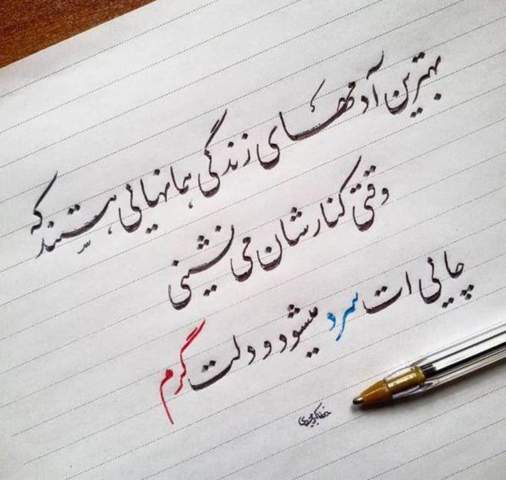 بهترین آدمهای زندگی همانهائی هستند که
وقتی کنارشان می نشینی
چائی ات سرد میشود و دلت گرم